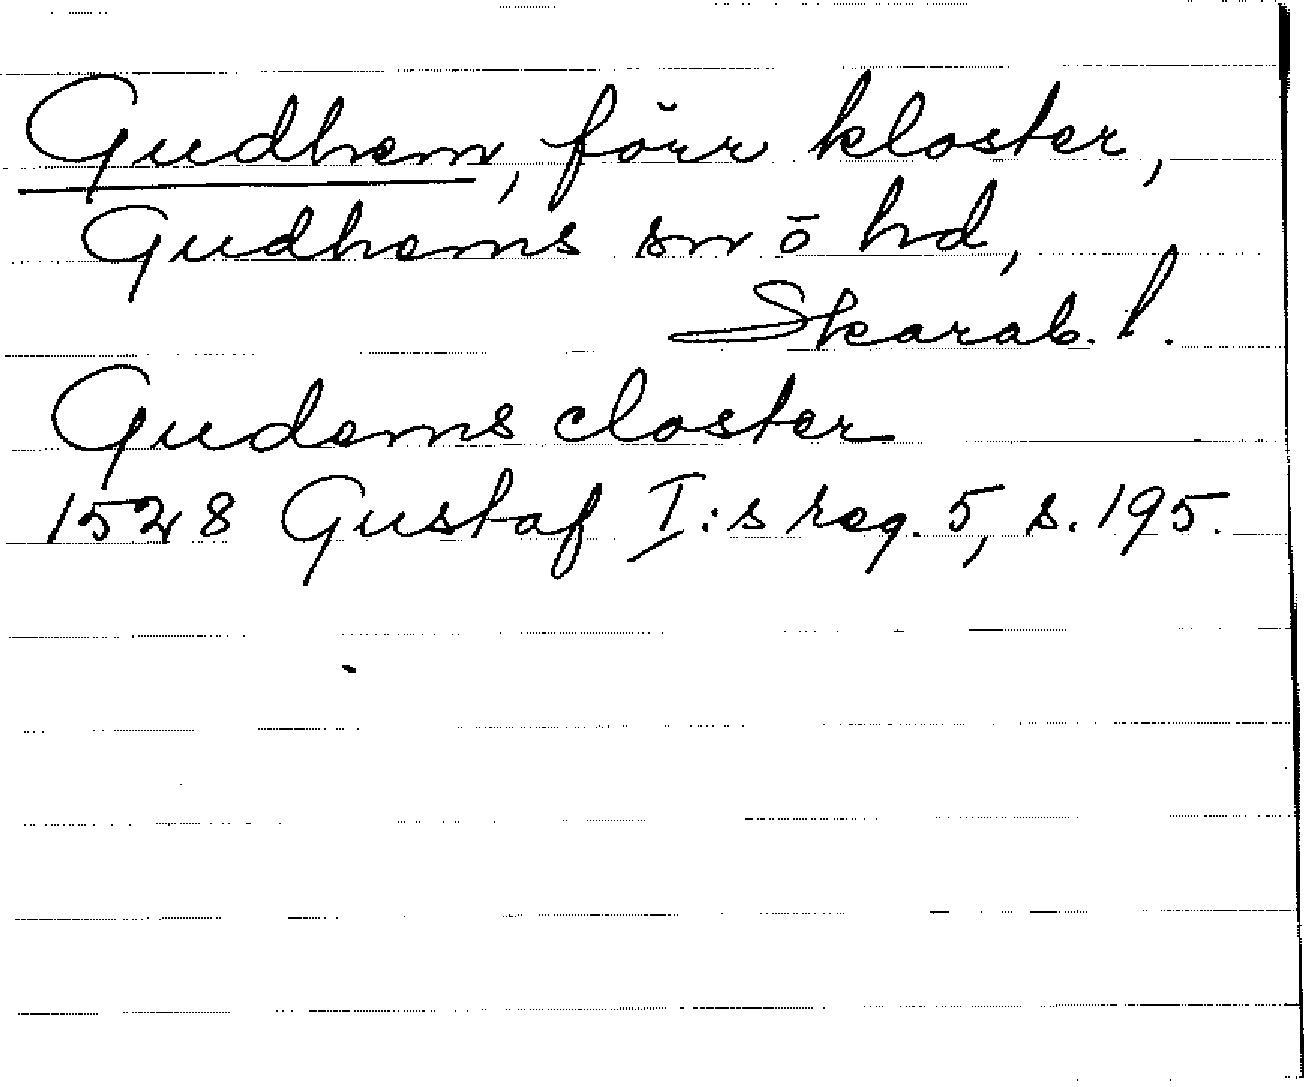 Gudhem, förr kloster,
Gudhems sn ō hd,
Skarab. l.
Gudems closter
1528 Gustaf I:s reg. 5, s. 195.